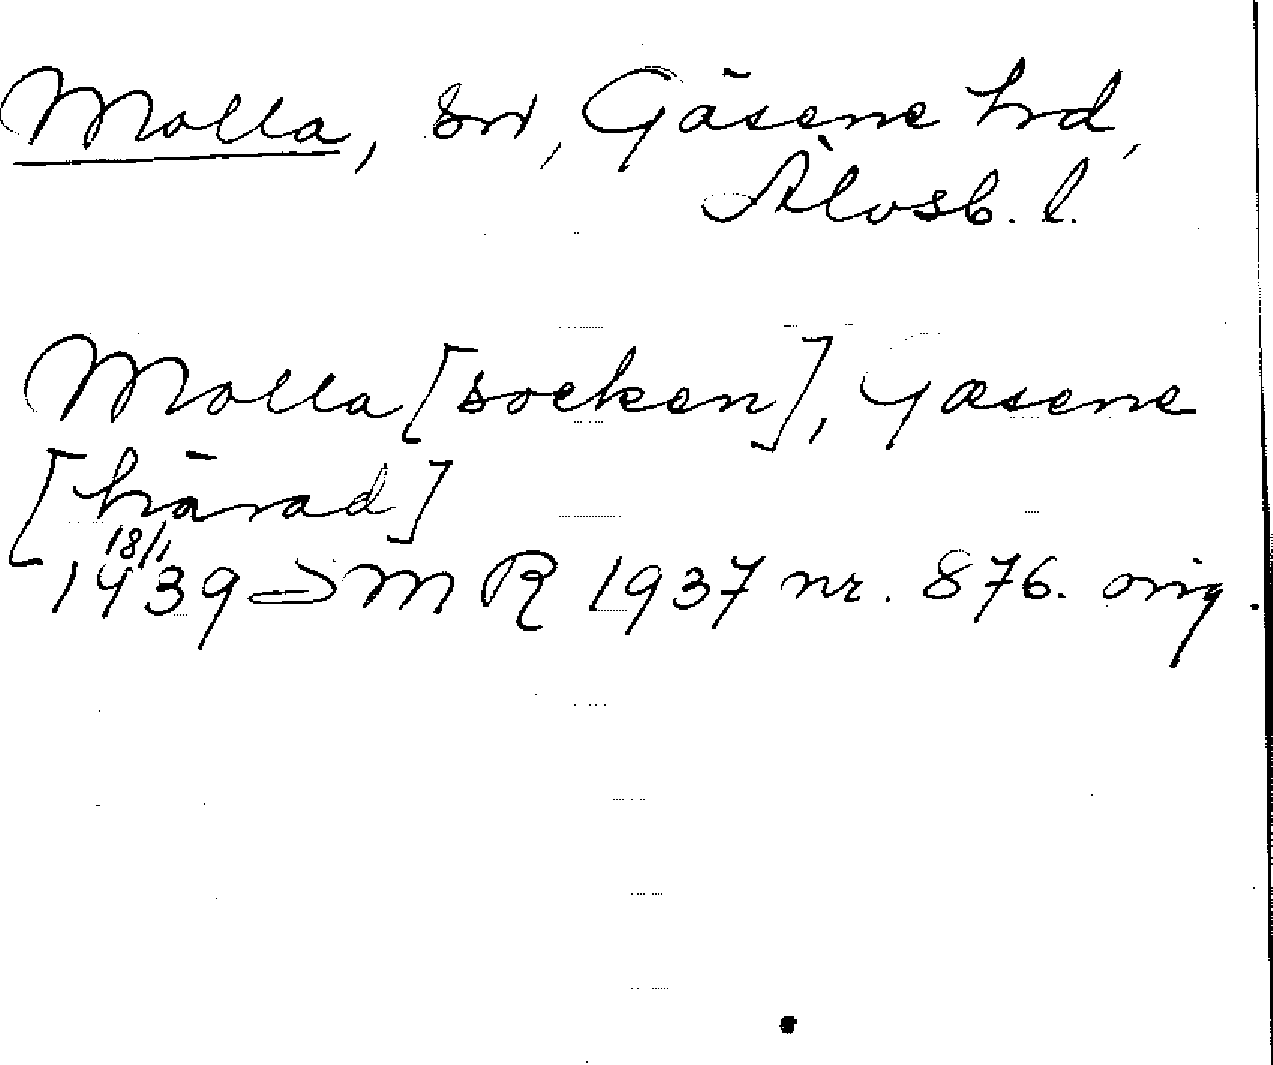 Molla, sn, Gäsene hd,
Älvsb. l.
Molla [socken], Gæsene
[härad]
18/1
1439 DMR 1937 nr. 876. orig.